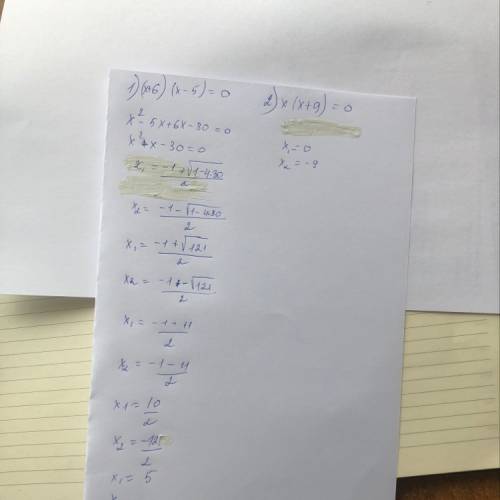 1) (x+6) (x-5) = 0
x² - 5x + 6x - 30 = 0
x² + x - 30 = 0
x₁ = (-1 + √(1-4·30)) / 2
x₂ = (-1 - √(1-4·30)) / 2
x₁ = (-1 + √121) / 2
x₂ = (-1 - √121) / 2
x₁ = (-1 + 11) / 2
x₂ = (-1 - 11) / 2
x₁ = 10 / 2
x₂ = -12 / 2
x₁ = 5
2) x (x+9) = 0
x₁ = 0
x₂ = -9